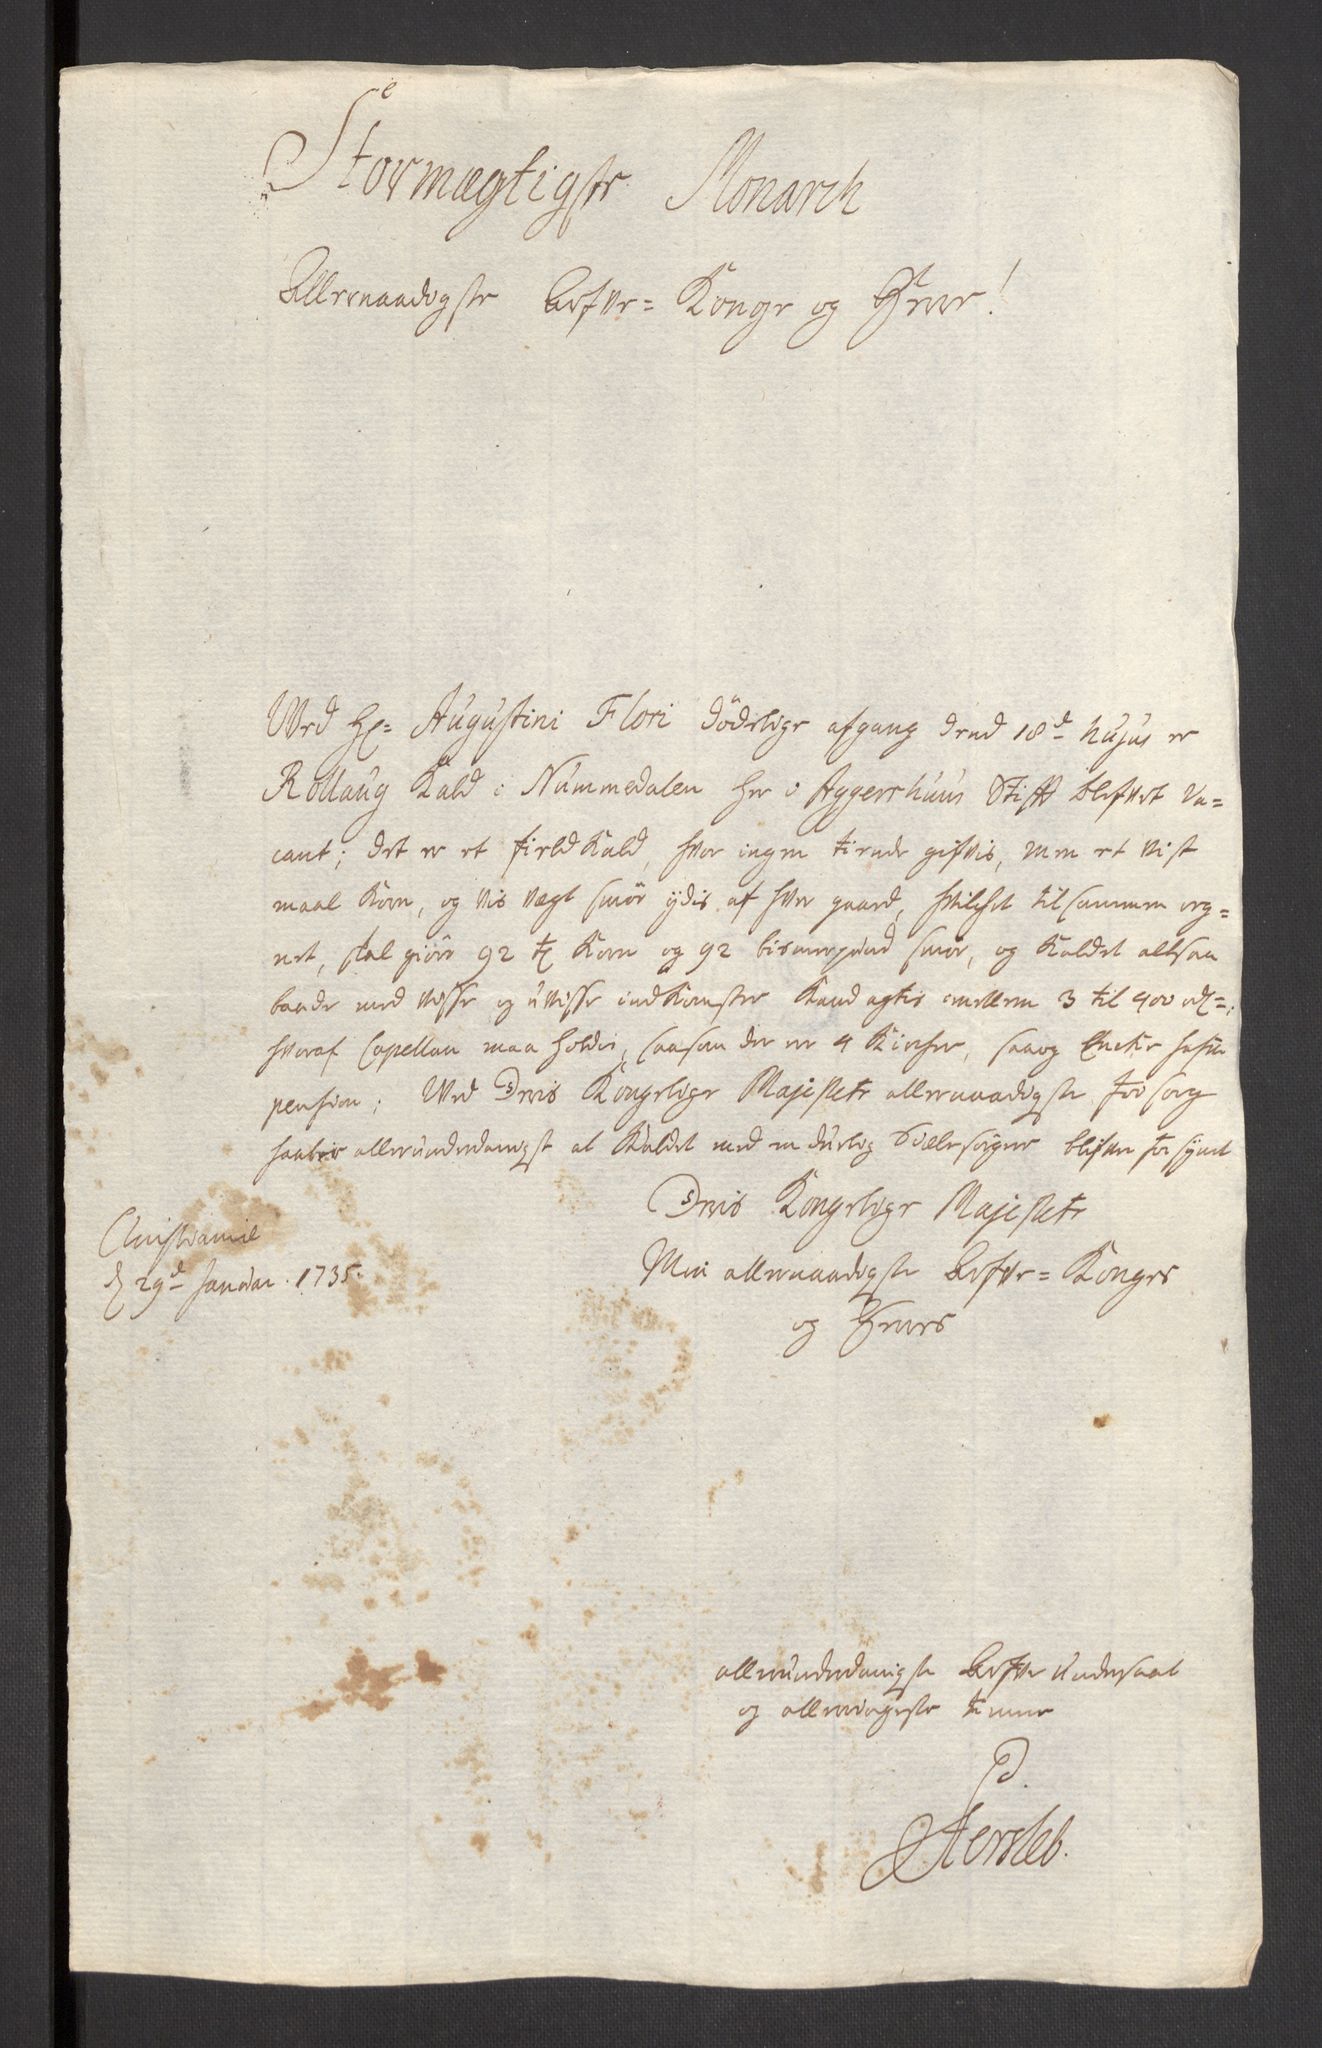 Stormægtigste Monarch
Allernaadigste Arfve= Konge og Herre!
Ved Hr= Augustini Flori dödelige afgang dend 18d hujus er
Rollaug Kald i Nummedalen her i Aggershuus Stift blefvet va=
cant; det er et field Kald, hvor ingen tiende gifvis, men et vist
maal Korn, og vis vægt smör ydis af hver gaard, hvilchet tilsammen reg=
net, skal giöre 92 tr Korn og 92 bismerpund smör, og Kaldet altsaa
baade med visse og uvisse indkomster kand agtis imellem 3 til 400 rdr=;
hvoraf Capellan maa holdis, saasom der er 4 Kircher, saa og Encke
pension; Ved Deris Kongelige Majestets allernaadigste forsorg
haabis allerunderdanigst at Kaldet med en duelig Siælesörger blifver forsynet
Deris Kongelige Majestets
Min allernaadigste Arfve= Konges
og Herres
Christianiæ
d 29d Januar. 1735.
allerunderdanigste Arfve undersaat
og allerringeste tienere
P.
Hersleb.